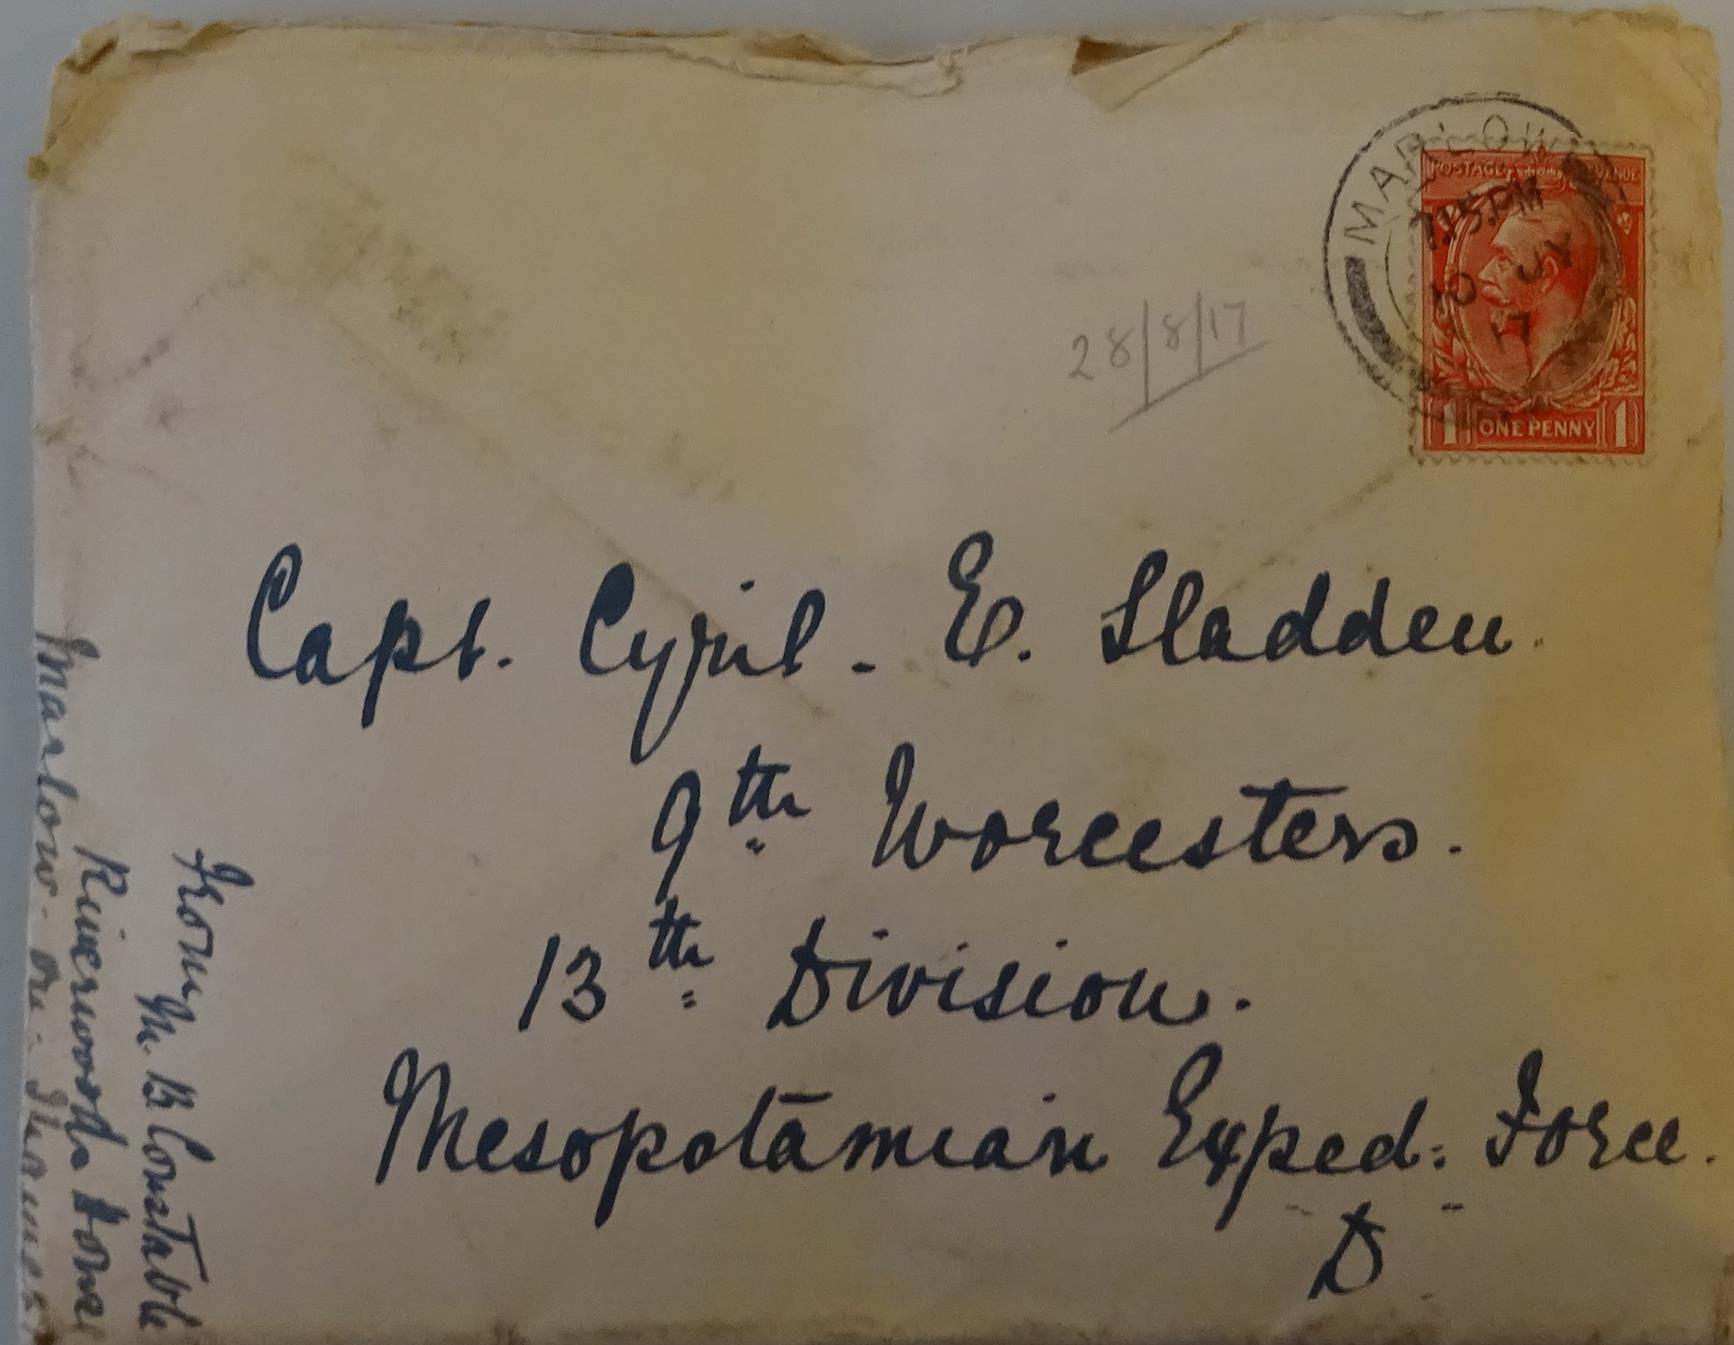 MARLOW
7.15 PM
10 JY
17
POSTAGE REVENUE
1 ONE PENNY 1
28/8/17
Capt. Cyril. E. Sladden.
9th Worcesters.
13th Division.
Mesopotamian Exped: Force.
D
From M. B Constable
Riverwoods
Marlow-on-Thames